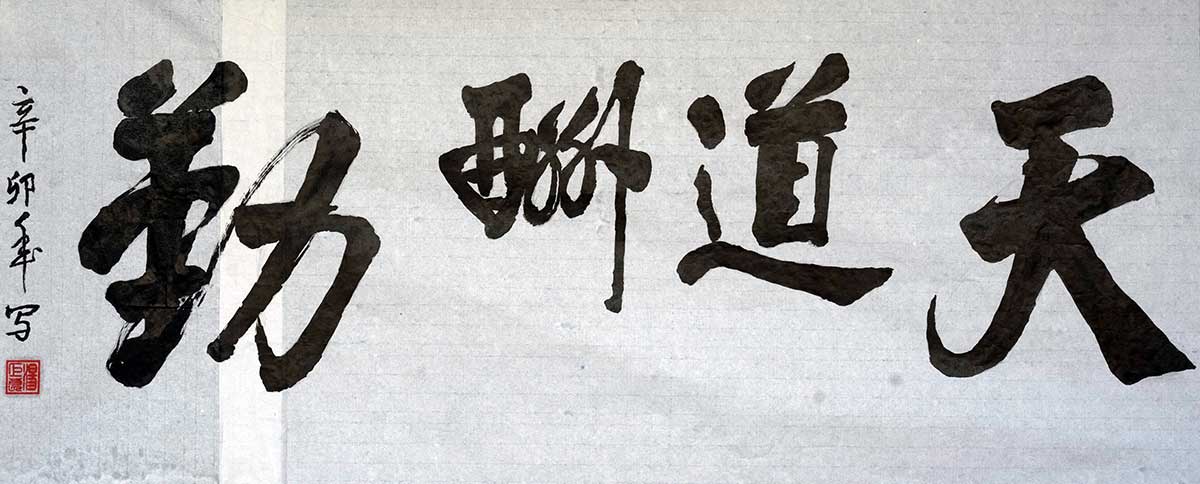 天道酬勤
辛卯年写